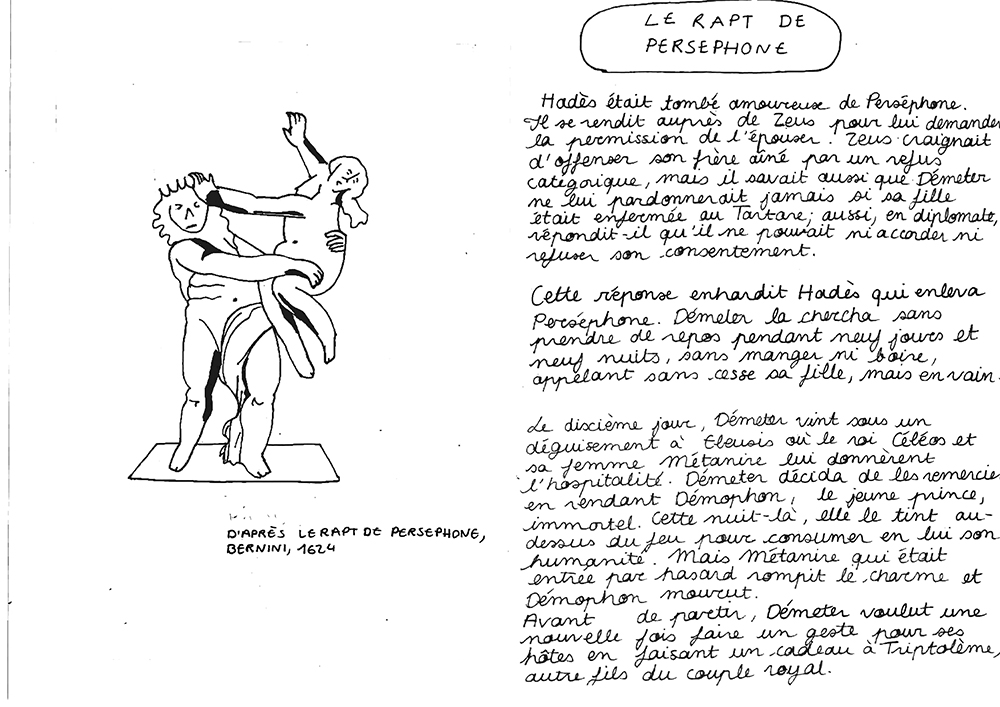 LE RAPT DE
PERSEPHONE
Hadès était tombé amoureuse de Perséphone.
Il se rendit auprès de Zeus pour lui demander
la permission de l'épouser. Zeus craignait
d'offenser son frère aîné par un refus
catégorique, mais il savait aussi que Démeter
ne lui pardonnerait jamais si sa fille
était enfermée au Tartare; aussi, en diplomate,
répondit-il qu'il ne pouvait ni accorder ni
refuser son consentement.
Cette réponse enhardit Hadès qui enleva
Perséphone. Démeter la chercha sans
prendre de repos pendant neuf jours et
neuf nuits, sans manger ni boire,
appelant sans cesse sa fille, mais en vain.
Le discième jour, Démeter vint sous un
déguisement à Eleusis où le roi Céléos et
sa femme Métanire lui donnèrent
l'hospitalité. Démeter décida de les remercier
en rendant Démophon, le jeune prince,
immortel. Cette nuit-là, elle le tint au-
dessus du feu pour consumer en lui son
humanité. Mais Métanire qui était
entrée par hasard rompit le charme et
Démophon mourut.
Avant de partir, Démeter voulut une
nouvelle fois faire un geste pour ses
hôtes en faisant un cadeau à Triptolème,
autre fils du couple royal.
D'APRÈS LE RAPT DE PERSEPHONE,
BERNINI, 1624